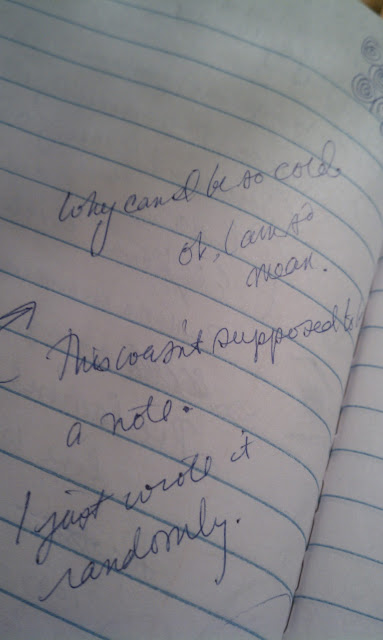 Why can I be so cold
oh, I am so
mean.
This wasn't supposed to
a note.
I just wrote it
randomly.